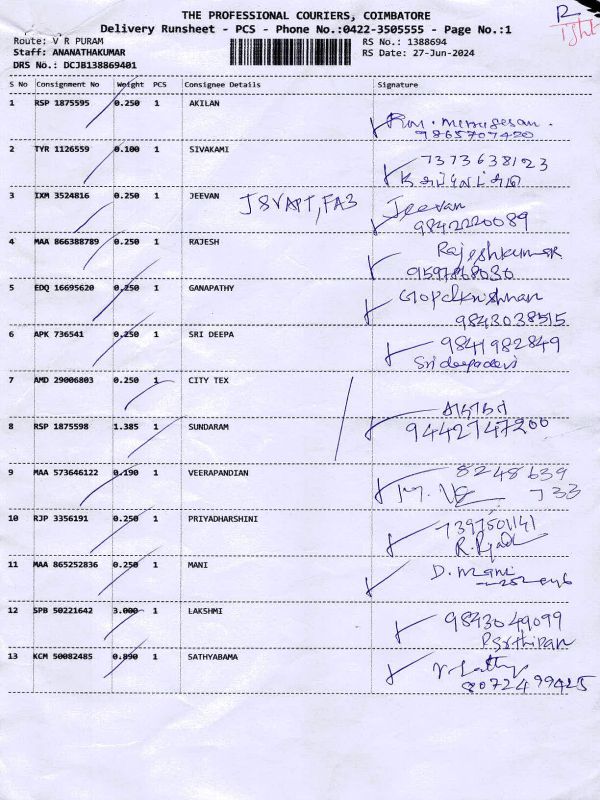 THE PROFESSIONAL COURIERS, COIMBATORE
Delivery Runsheet - PCS - Phone No.:0422-3505555 - Page No.:1
Route: V R PURAM
RS No.: 1388694
Staff: ANANATHAKUMAR
RS Date: 27-Jun-2024
DRS No.: DCJB138869401
S No Consignment No Weight PCS Consignee Details Signature
1 RSP 1875595 0.250 1 AKILAN
9865707420
2 TYR 1126559 0.100 1 SIVAKAMI 7373638123
3 IXM 3524816 0.250 1 JEEVAN Jeevan
9842220089
4 MAA 866388789 0.250 1 RAJESH Rajeshkumar
9597868030
5 EDQ 16695620 0.250 1 GANAPATHY Gopalkrishnan
9843038515
6 APK 736541 0.250 1 SRI DEEPA 9841982849
Srideepadevi
7 AMD 29006803 0.250 1 CITY TEX
8 RSP 1875598 1.385 1 SUNDARAM 9442747200
9 MAA 573646122 0.190 1 VEERAPANDIAN 8248639
733
10 RJP 3356191 0.250 1 PRIYADHARSHINI
11 MAA 865252836 0.250 1 MANI D. Mani
12 SPB 50221642 3.000 1 LAKSHMI 9843049099
Parthipan
13 KCM 50082485 0.890 1 SATHYABAMA
8072499425